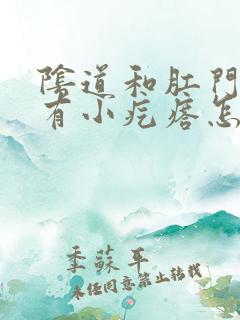 陰道和肛門
有小疙瘩怎
季蘇平
未经同意禁止转载